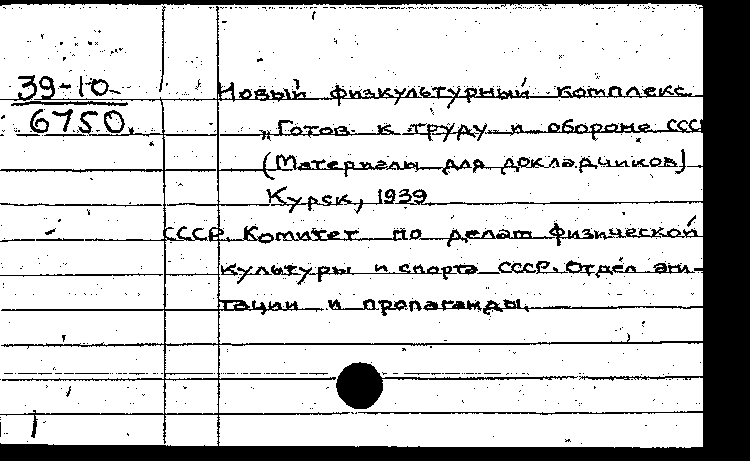 39-10
6750.
Новый физкультурный комплекс
„Готов к труду и обороне СССР
(Материалы для докладчиков)
Курск, 1939
СССР. Комитет по делам физической
культуры и спорта СССР. Отдел аги-
тации и пропаганды.
1